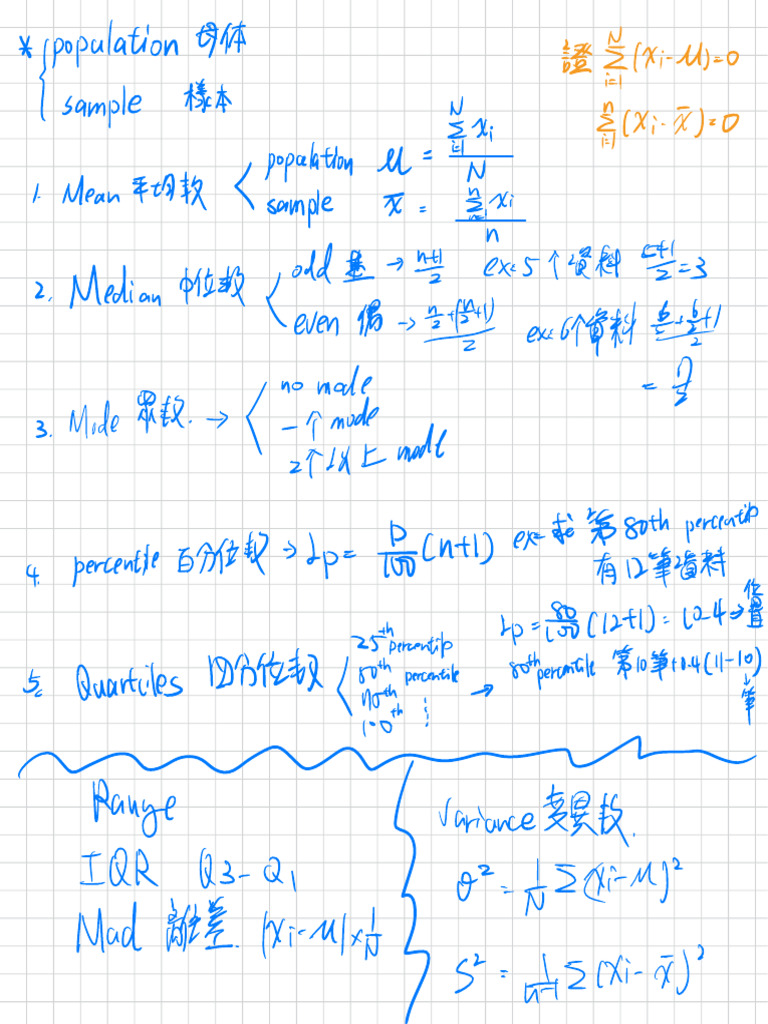 * { population 母体
sample 樣本
證 Σ_{i=1}^{N} (xi-μ)=0
Σ_{i=1}^{n} (xi-x̄)=0
1. Mean 平均数 < population μ = Σ_{i=1}^{N} xi / N
sample x̄ = Σ xi / n
2. Median 中位数 < odd → (n+1)/2 ex: 5个資料 (5+1)/2 = 3
even 偶 → (n/2 + (n/2+1))/2 ex: 6个資料 (6/2 + 6/2 + 1)/2
= 7/2
3. Mode 眾数. → < no mode
一个 mode
2个以上 mode
4. percentile 百分位数 → Lp = P/100 (n+1) ex: 求第80th percentile
有12筆資料
Lp = 80/100 (12+1) = 10.4 → 位置
5. Quartiles 四分位数 < 25th percentile
50th percentile
100th
→ 80th percentile 第10筆+0.4(11-10)
↓筆
Range
IQR Q3-Q1
Mad 離差. |xi-μ|×1/N
Variance 变異数.
σ² = 1/N Σ(xi-μ)²
S² = 1/(n-1) Σ(xi-x̄)²